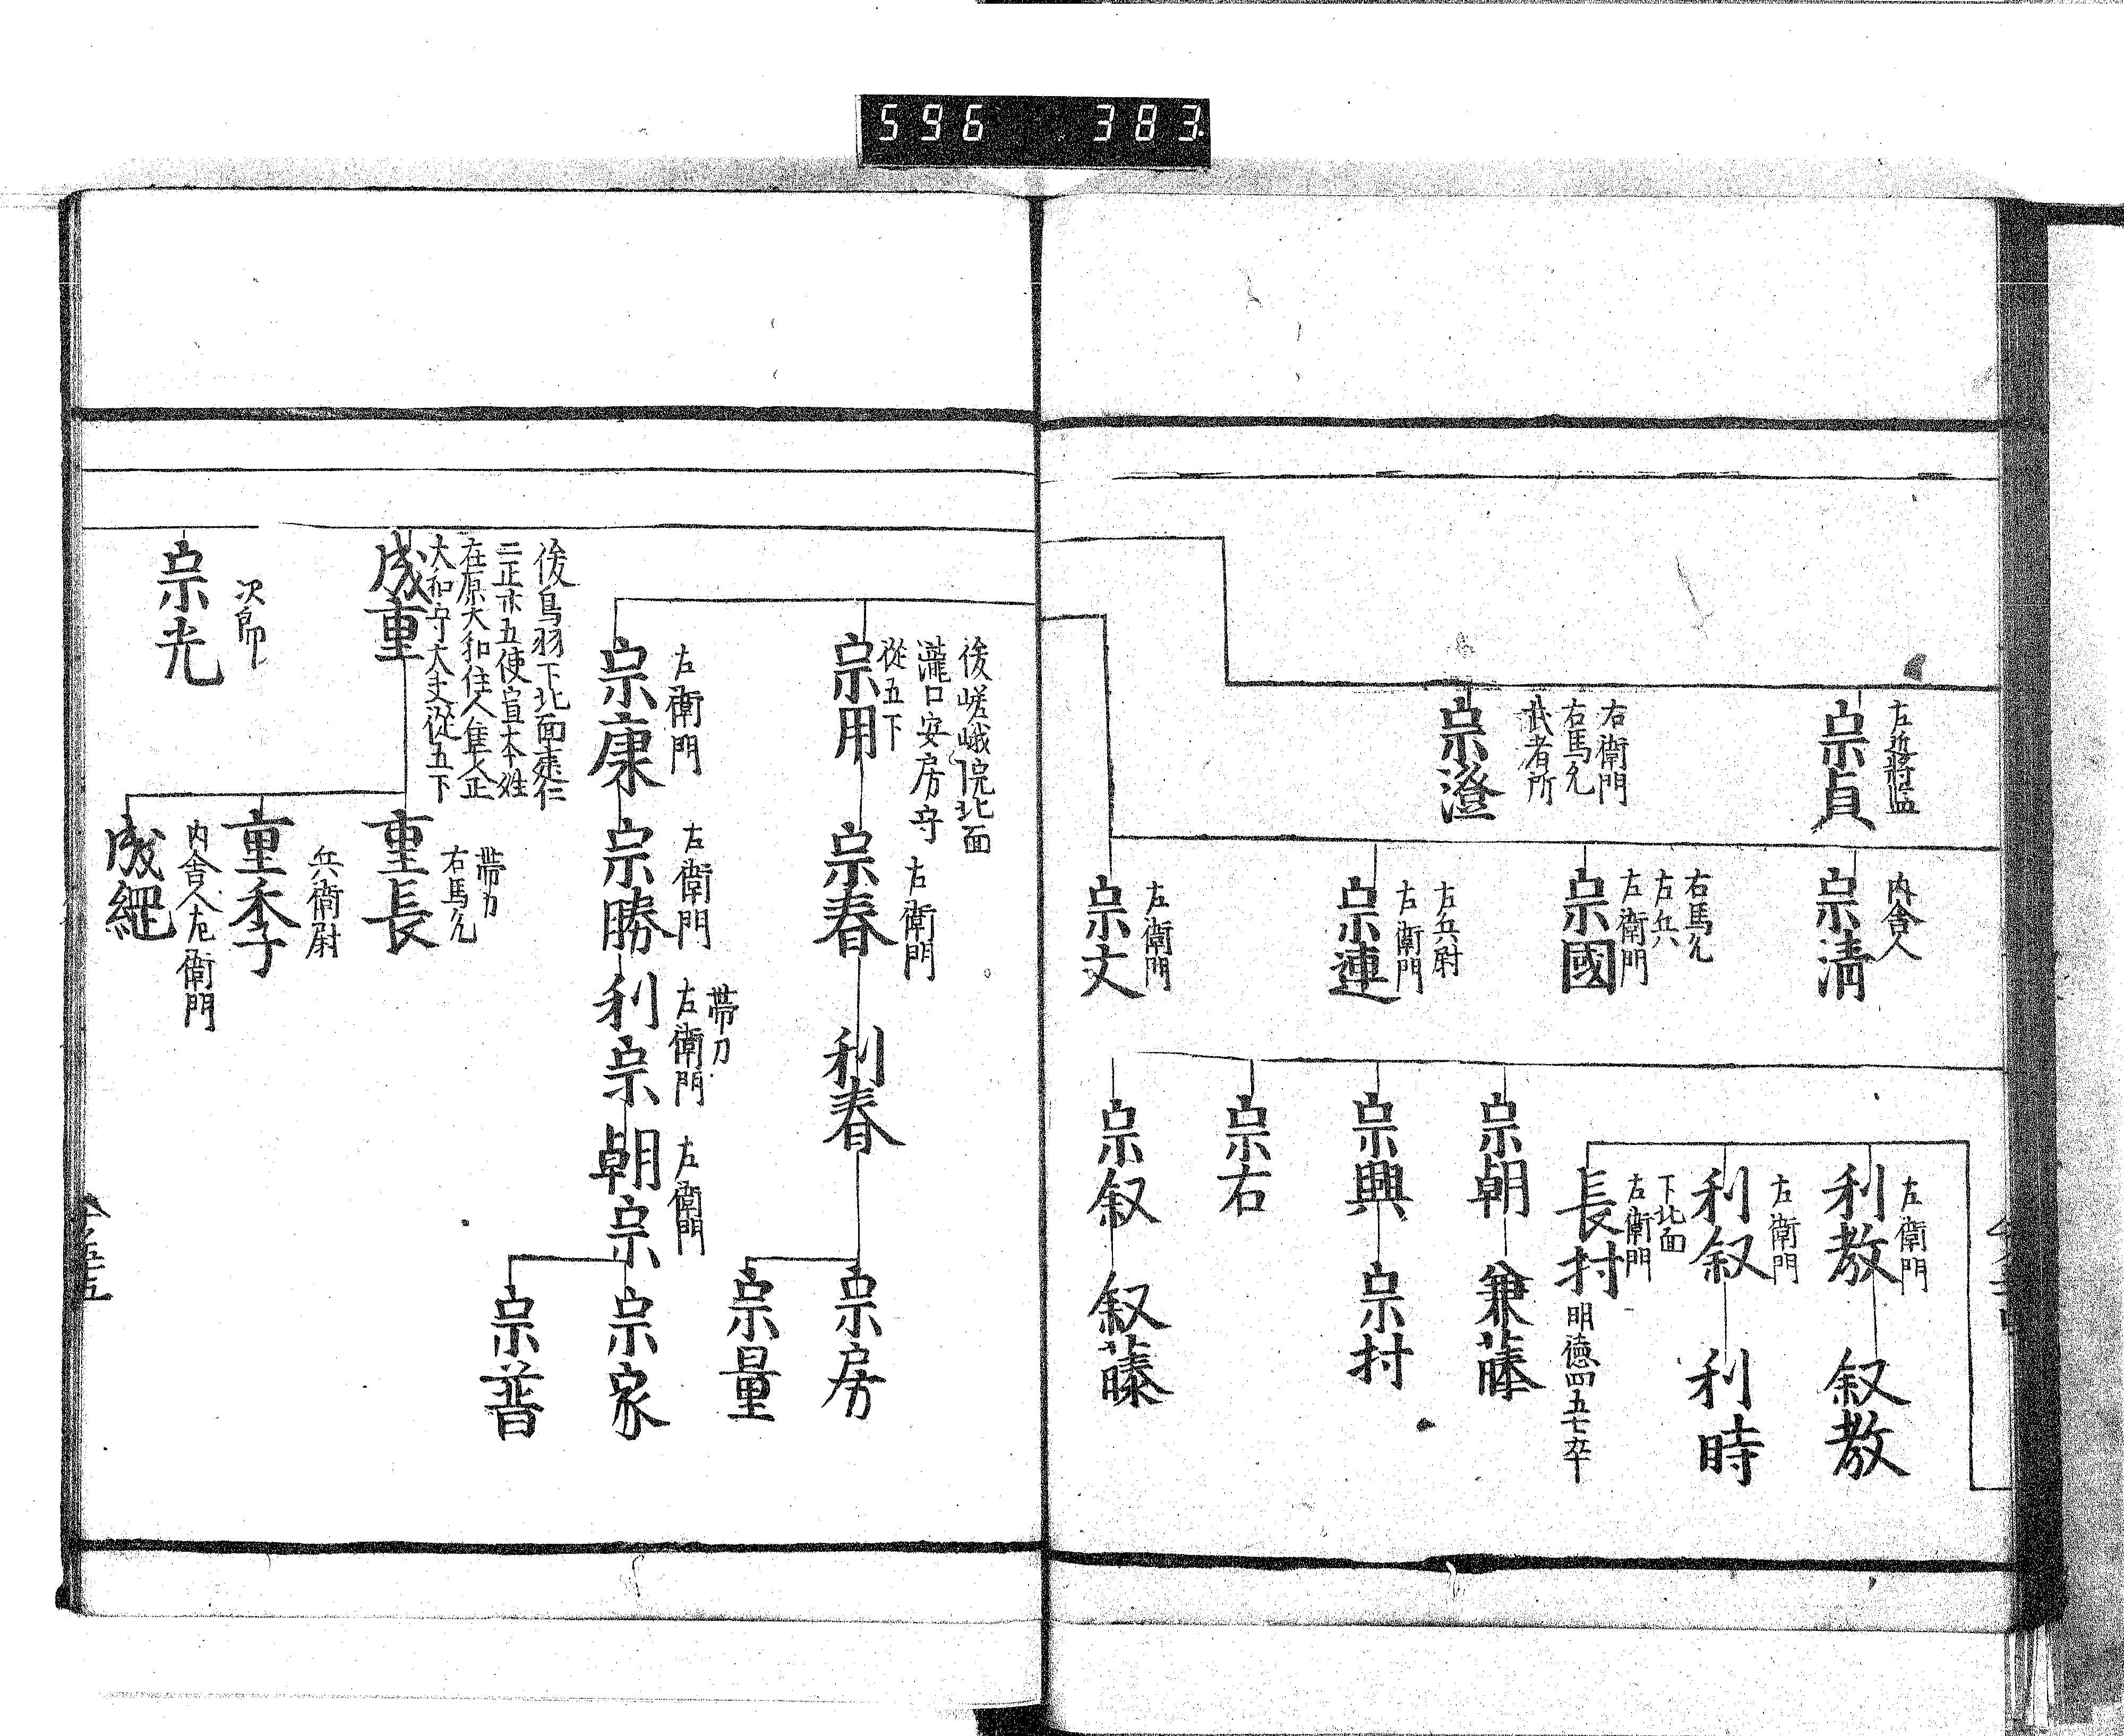 596 383
左近將監
宗貞
右衛門
右馬允
武者所
宗澄
内舎人
宗清
右馬允
左兵
左衛門
宗國
左兵尉
右衛門
宗連
左衛門
宗丈
左衛門
利教
叙教
左衛門
利叙
利時
下北面
右衛門
長村
明德四五七卒
宗朝
兼藤
宗興
宗村
宗右
宗叙
叙藤
後嵯峨院北面
瀧口安房守
從五下
宗用
右衛門
宗春
利春
宗房
宗量
左衛門
宗康
左衛門
宗勝
帯刀
左衛門
利宗
左衛門
朝宗
宗家
宗普
後鳥羽下北面建仁
二正廿五使宣本姓
在原大和住人隼人正
大和守大夫從五下
成重
帯刀
右馬允
重長
兵衛尉
重季
内舎人左衛門
成繩
次郎
宗光